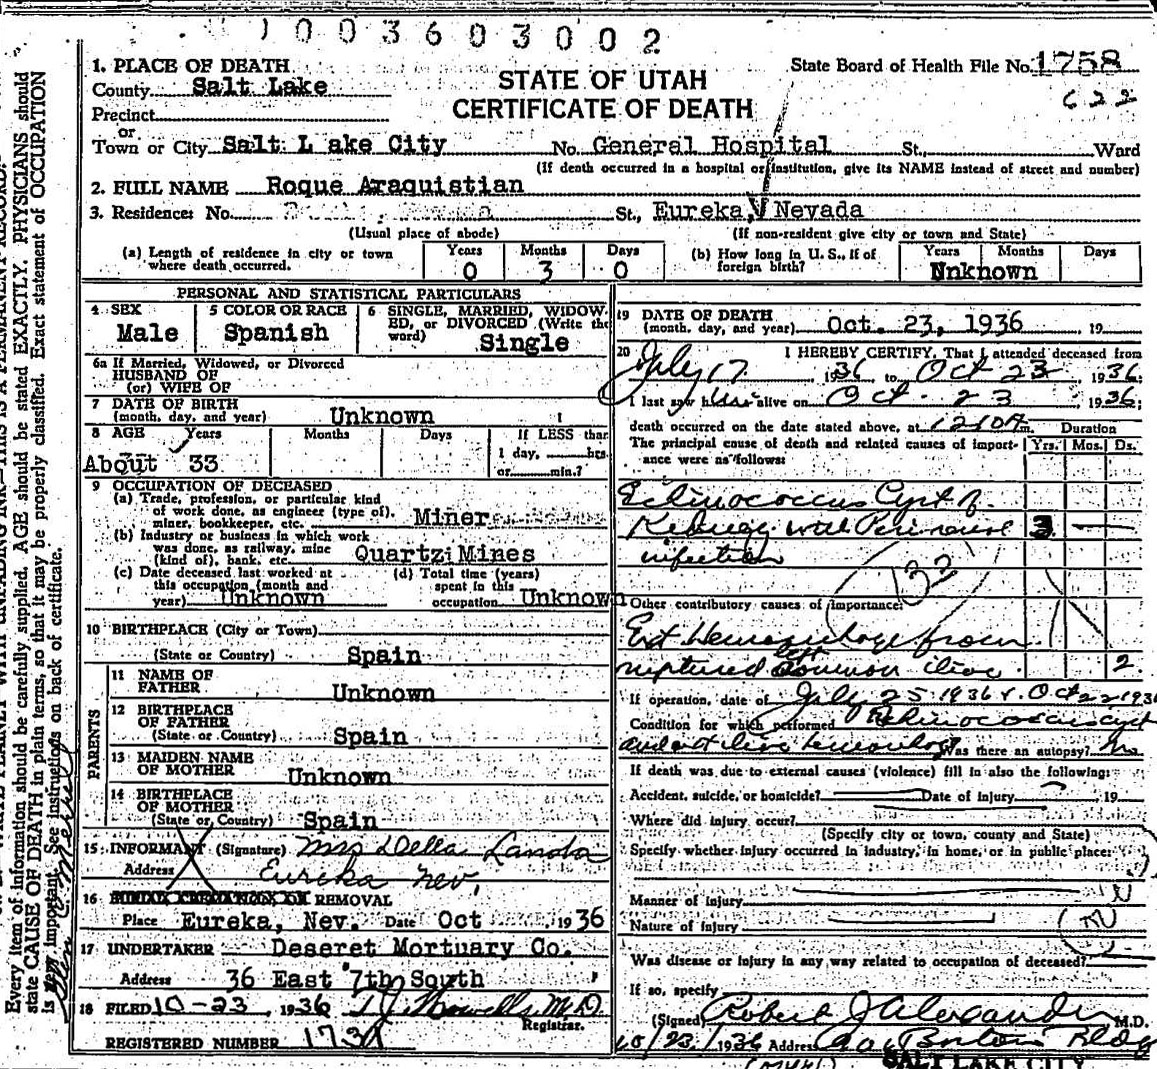 1003603002
1. PLACE OF DEATH
County Salt Lake
Precinct
or
Town or City Salt L ake City No. General Hospital St., Ward
STATE OF UTAH
CERTIFICATE OF DEATH
State Board of Health File No. 1758
622
(If death occurred in a hospital or institution, give its NAME instead of street and number)
2. FULL NAME Roque Araquistian
3. Residence: No. St., Eureka, Nevada
(Usual place of abode) (If non-resident give city or town and State)
(a) Length of residence in city or town where death occurred. Years 0 Months 3 Days 0
(b) How long in U. S., if of foreign birth? Years Months Days Unknown
PERSONAL AND STATISTICAL PARTICULARS
4 SEX Male
5 COLOR OR RACE Spanish
6 SINGLE, MARRIED, WIDOWED, or DIVORCED (Write the word) Single
6a If Married, Widowed, or Divorced
HUSBAND OF
(or) WIFE OF
7 DATE OF BIRTH
(month, day, and year) Unknown
8 AGE Years Months Days If LESS than
1 day, hrs.
or min.?
About 33
9 OCCUPATION OF DECEASED
(a) Trade, profession, or particular kind
of work done, as engineer (type of),
miner, bookkeeper, etc. Miner
(b) Industry or business in which work
was done, as railway, mine
(kind of), bank, etc. Quartz Mines
(c) Date deceased last worked at
this occupation (month and
year) Unknown
(d) Total time (years)
spent in this
occupation Unknown
10 BIRTHPLACE (City or Town)
(State or Country) Spain
PARENTS
11 NAME OF
FATHER Unknown
12 BIRTHPLACE
OF FATHER
(State or Country) Spain
13 MAIDEN NAME
OF MOTHER Unknown
14 BIRTHPLACE
OF MOTHER
(State or Country) Spain
15 INFORMANT (Signature) Mrs Della Landa
Address Eureka Nev.
16 BURIAL CREMATION OR REMOVAL
Place Eureka, Nev. Date Oct 1936
17 UNDERTAKER Deseret Mortuary Co.
Address 36 East 7th South
18 FILED 10-23, 1936 T J Howells M.D.
Registrar.
REGISTERED NUMBER 1731
19 DATE OF DEATH
(month, day, and year) Oct. 23, 1936, 19
20 I HEREBY CERTIFY, That I attended deceased from
July 17 1936 to Oct 23 1936;
I last saw him alive on Oct. 23 1936;
death occurred on the date stated above, at 1210A m. Duration
The principal cause of death and related causes of importance were as follows: Yrs. Mos. Ds.
Echinococcus Cyst of
Kidney with Perirenal 3
infection
132
Other contributory causes of importance:
Ext Hemorrhage from
left
ruptured common iliac 2
If operation, date of July 25 1936 & Oct 22 1936
Condition for which performed Echinococcus cyst
Was there an autopsy? No
If death was due to external causes (violence) fill in also the following:
Accident, suicide, or homicide? Date of injury 19
Where did injury occur?
(Specify city or town, county and State)
Specify whether injury occurred in industry, in home, or in public place:
Manner of injury
Nature of injury
Was disease or injury in any way related to occupation of deceased?
If so, specify
(Signed) Robert J Alexander M.D.
10/23/1936 Address Boston Bldg
SALT LAKE CITY
Every item of information should be carefully supplied. AGE should be stated EXACTLY. PHYSICIANS should
state CAUSE OF DEATH in plain terms, so that it may be properly classified. Exact statement of OCCUPATION
is very important. See instructions on back of certificate.